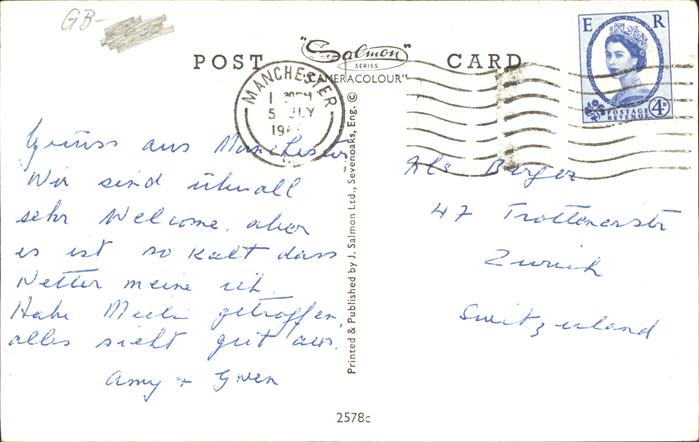 GB-
POST CARD
"Salmon"
SERIES
CAMERACOLOUR"
E R
POSTAGE
REVENUE
4D
MANCHESTER
5 JLY
19
Grüss aus Manchester
Wir sind überall
sehr Welcome, aber
es ist so kalt dass
Wetter meine ich.
Habe Meili getroffen,
alles sieht gut aus.
Amy + Gwen
Printed & Published by J. Salmon Ltd., Sevenoaks, Eng. ©
Als Berger
47 Trottenerstr
Zurich
Switzerland
2578c